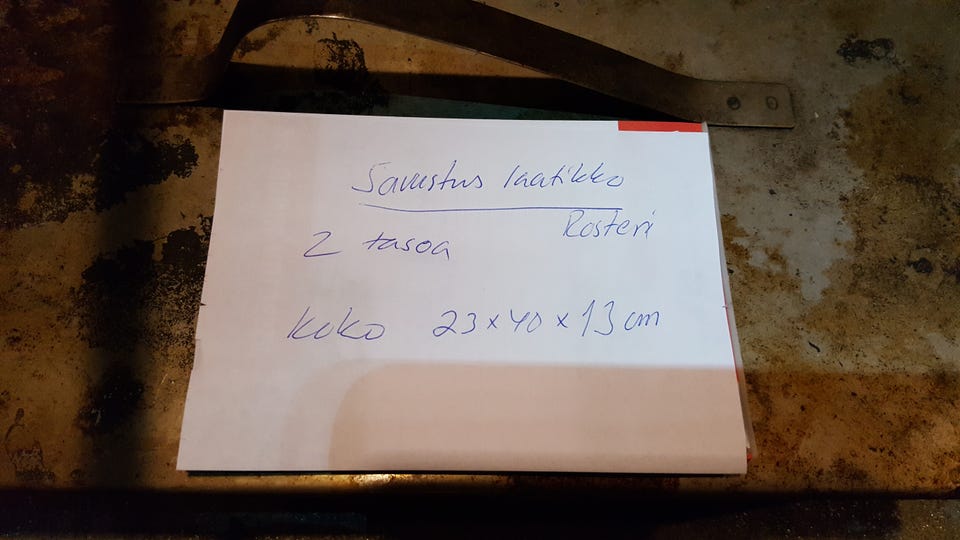 Savustus laatikko
Rosteri
2 tasoa
koko 23 x 40 x 13 cm